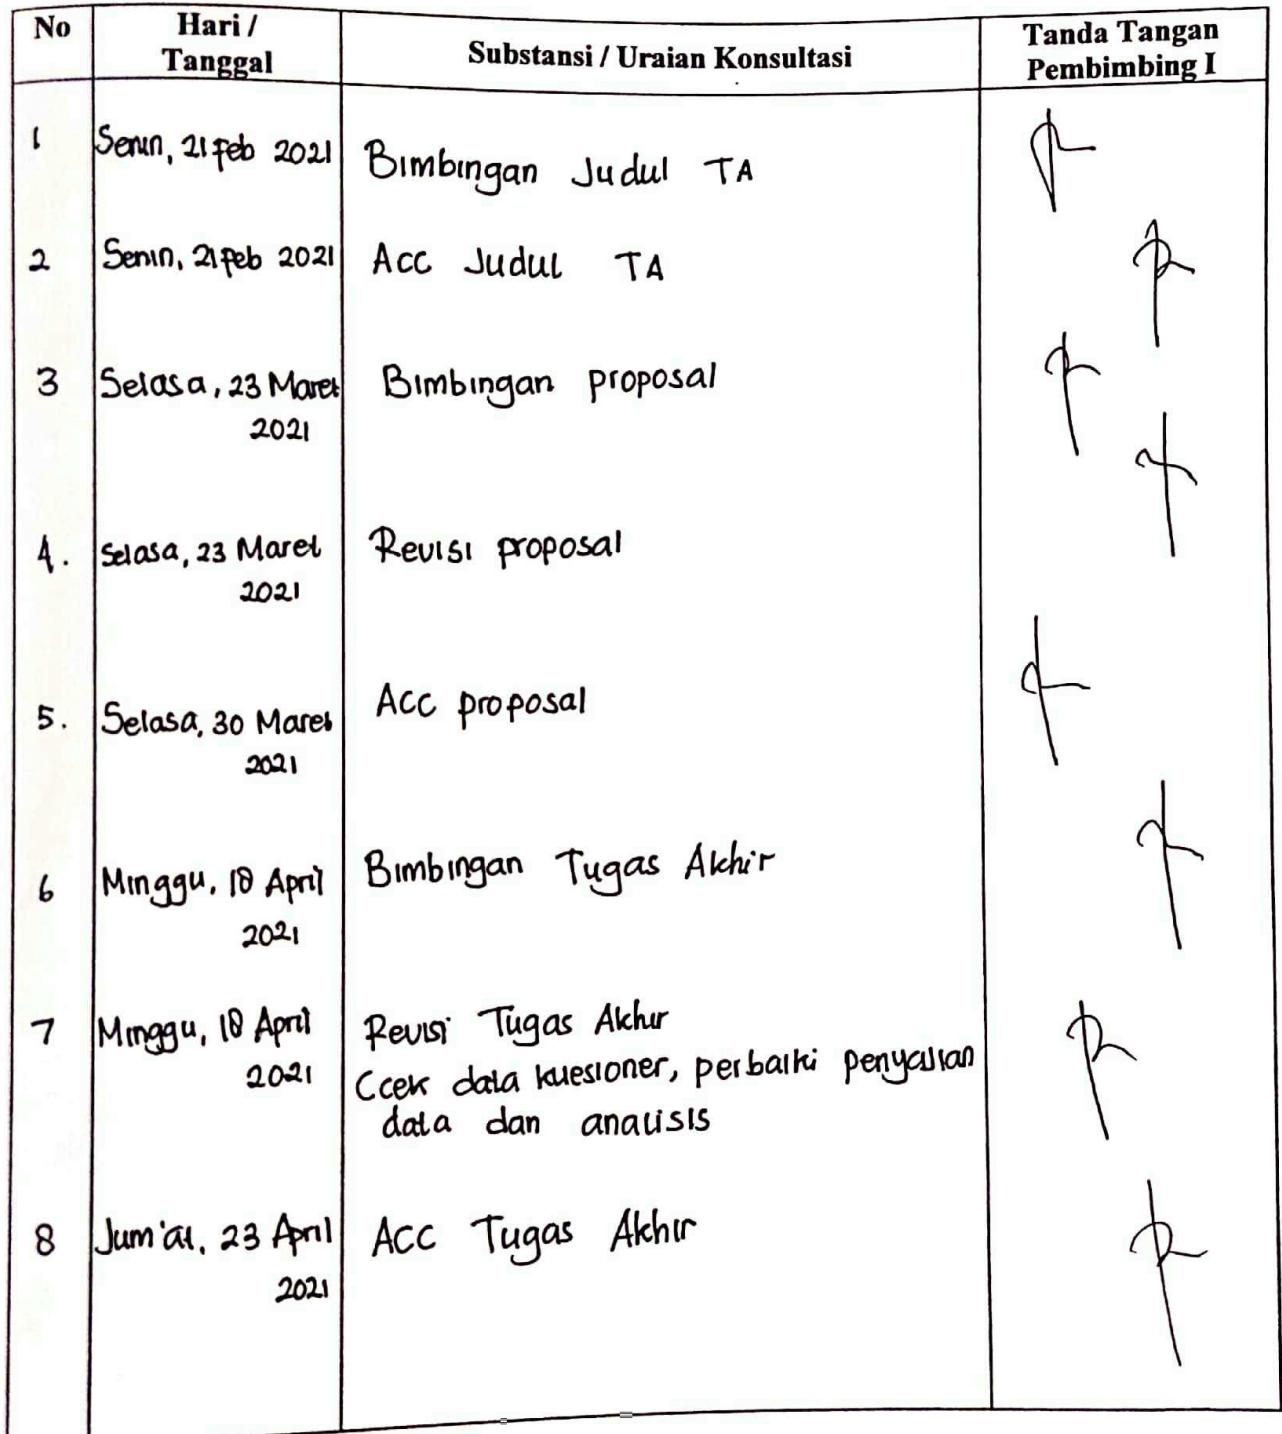 No
Hari /
Tanggal
Substansi / Uraian Konsultasi
Tanda Tangan
Pembimbing I
1
Senin, 21 Feb 2021
Bimbingan Judul TA
2
Senin, 21 Feb 2021
Acc Judul TA
3
Selasa, 23 Maret
2021
Bimbingan proposal
4.
Selasa, 23 Maret
2021
Revisi proposal
5.
Selasa, 30 Maret
2021
Acc proposal
6
Minggu, 18 April
2021
Bimbingan Tugas Akhir
7
Minggu, 18 April
2021
Revisi Tugas Akhir
Ccek data kuesioner, perbaiki penyajian
data dan analisis
8
Jum'at, 23 April
2021
Acc Tugas Akhir